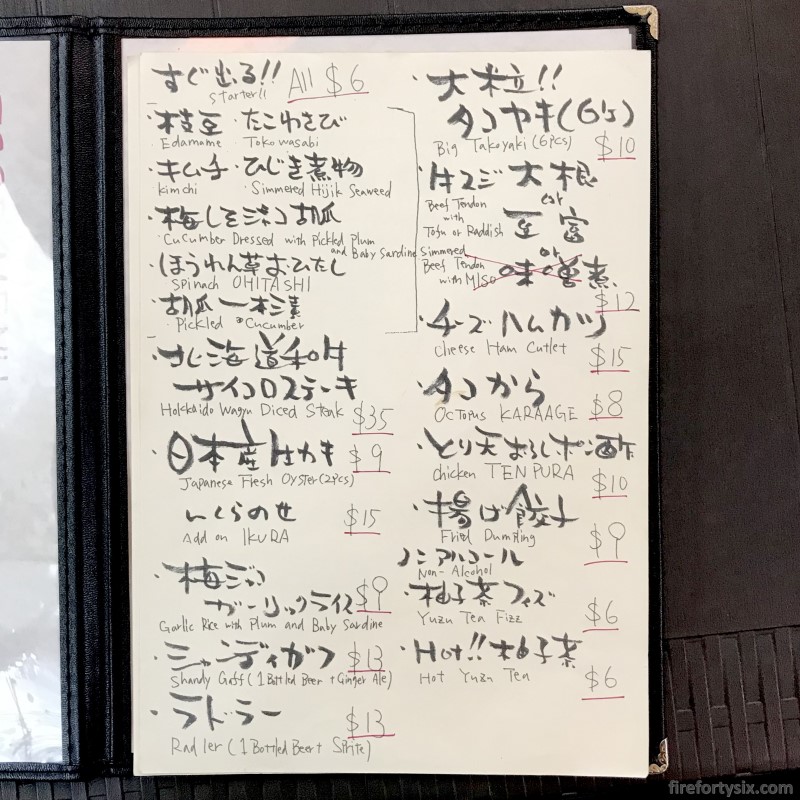 すぐ出る!! All $6
Starter!!
・枝豆 ・たこわさび
Edamame Tokowasabi
・キムチ ・ひじき煮物
kimchi Simmered Hijik Seaweed
・梅しそジャコ胡瓜
Cucumber Dressed with Pickled Plum
and Baby Sardine
・ほうれん草おひたし
Spinach OHITASHI
・胡瓜一本漬
Pickled Cucumber
・北海道和牛
サイコロステーキ
Hokkaido Wagyu Diced Steak $35
・日本産生カキ $9
Japanese Fresh Oyster (2pcs)
いくらのせ $15
Add on IKURA
・梅ジャコ
ガーリックライス $9
Garlic Rice with Plum and Baby Sardine
・シャンディガフ $13
Shandy Gaff (1 Bottled Beer + Ginger Ale)
・ラドラー $13
Radler (1 Bottled Beer + Sprite)
・大粒!!
タコヤキ(6ヶ)
Big Takoyaki (6pcs) $10
・牛スジ大根
Beef Tendon or
with 豆富
Tofu or Raddish
Simmered or
Beef Tendon 味噌煮
with MISO
$12
・チーズハムカツ
Cheese Ham Cutlet $15
・タコから
Octopus KARAAGE $8
・とり天おろしポン酢
Chicken TENPURA $10
・揚げ餃子
Fried Dumpling $9
ノンアルコール
Non-Alcohol
・柚子茶フィズ
Yuzu Tea Fizz $6
・Hot!!柚子茶
Hot Yuzu Tea $6
firefortysix.com